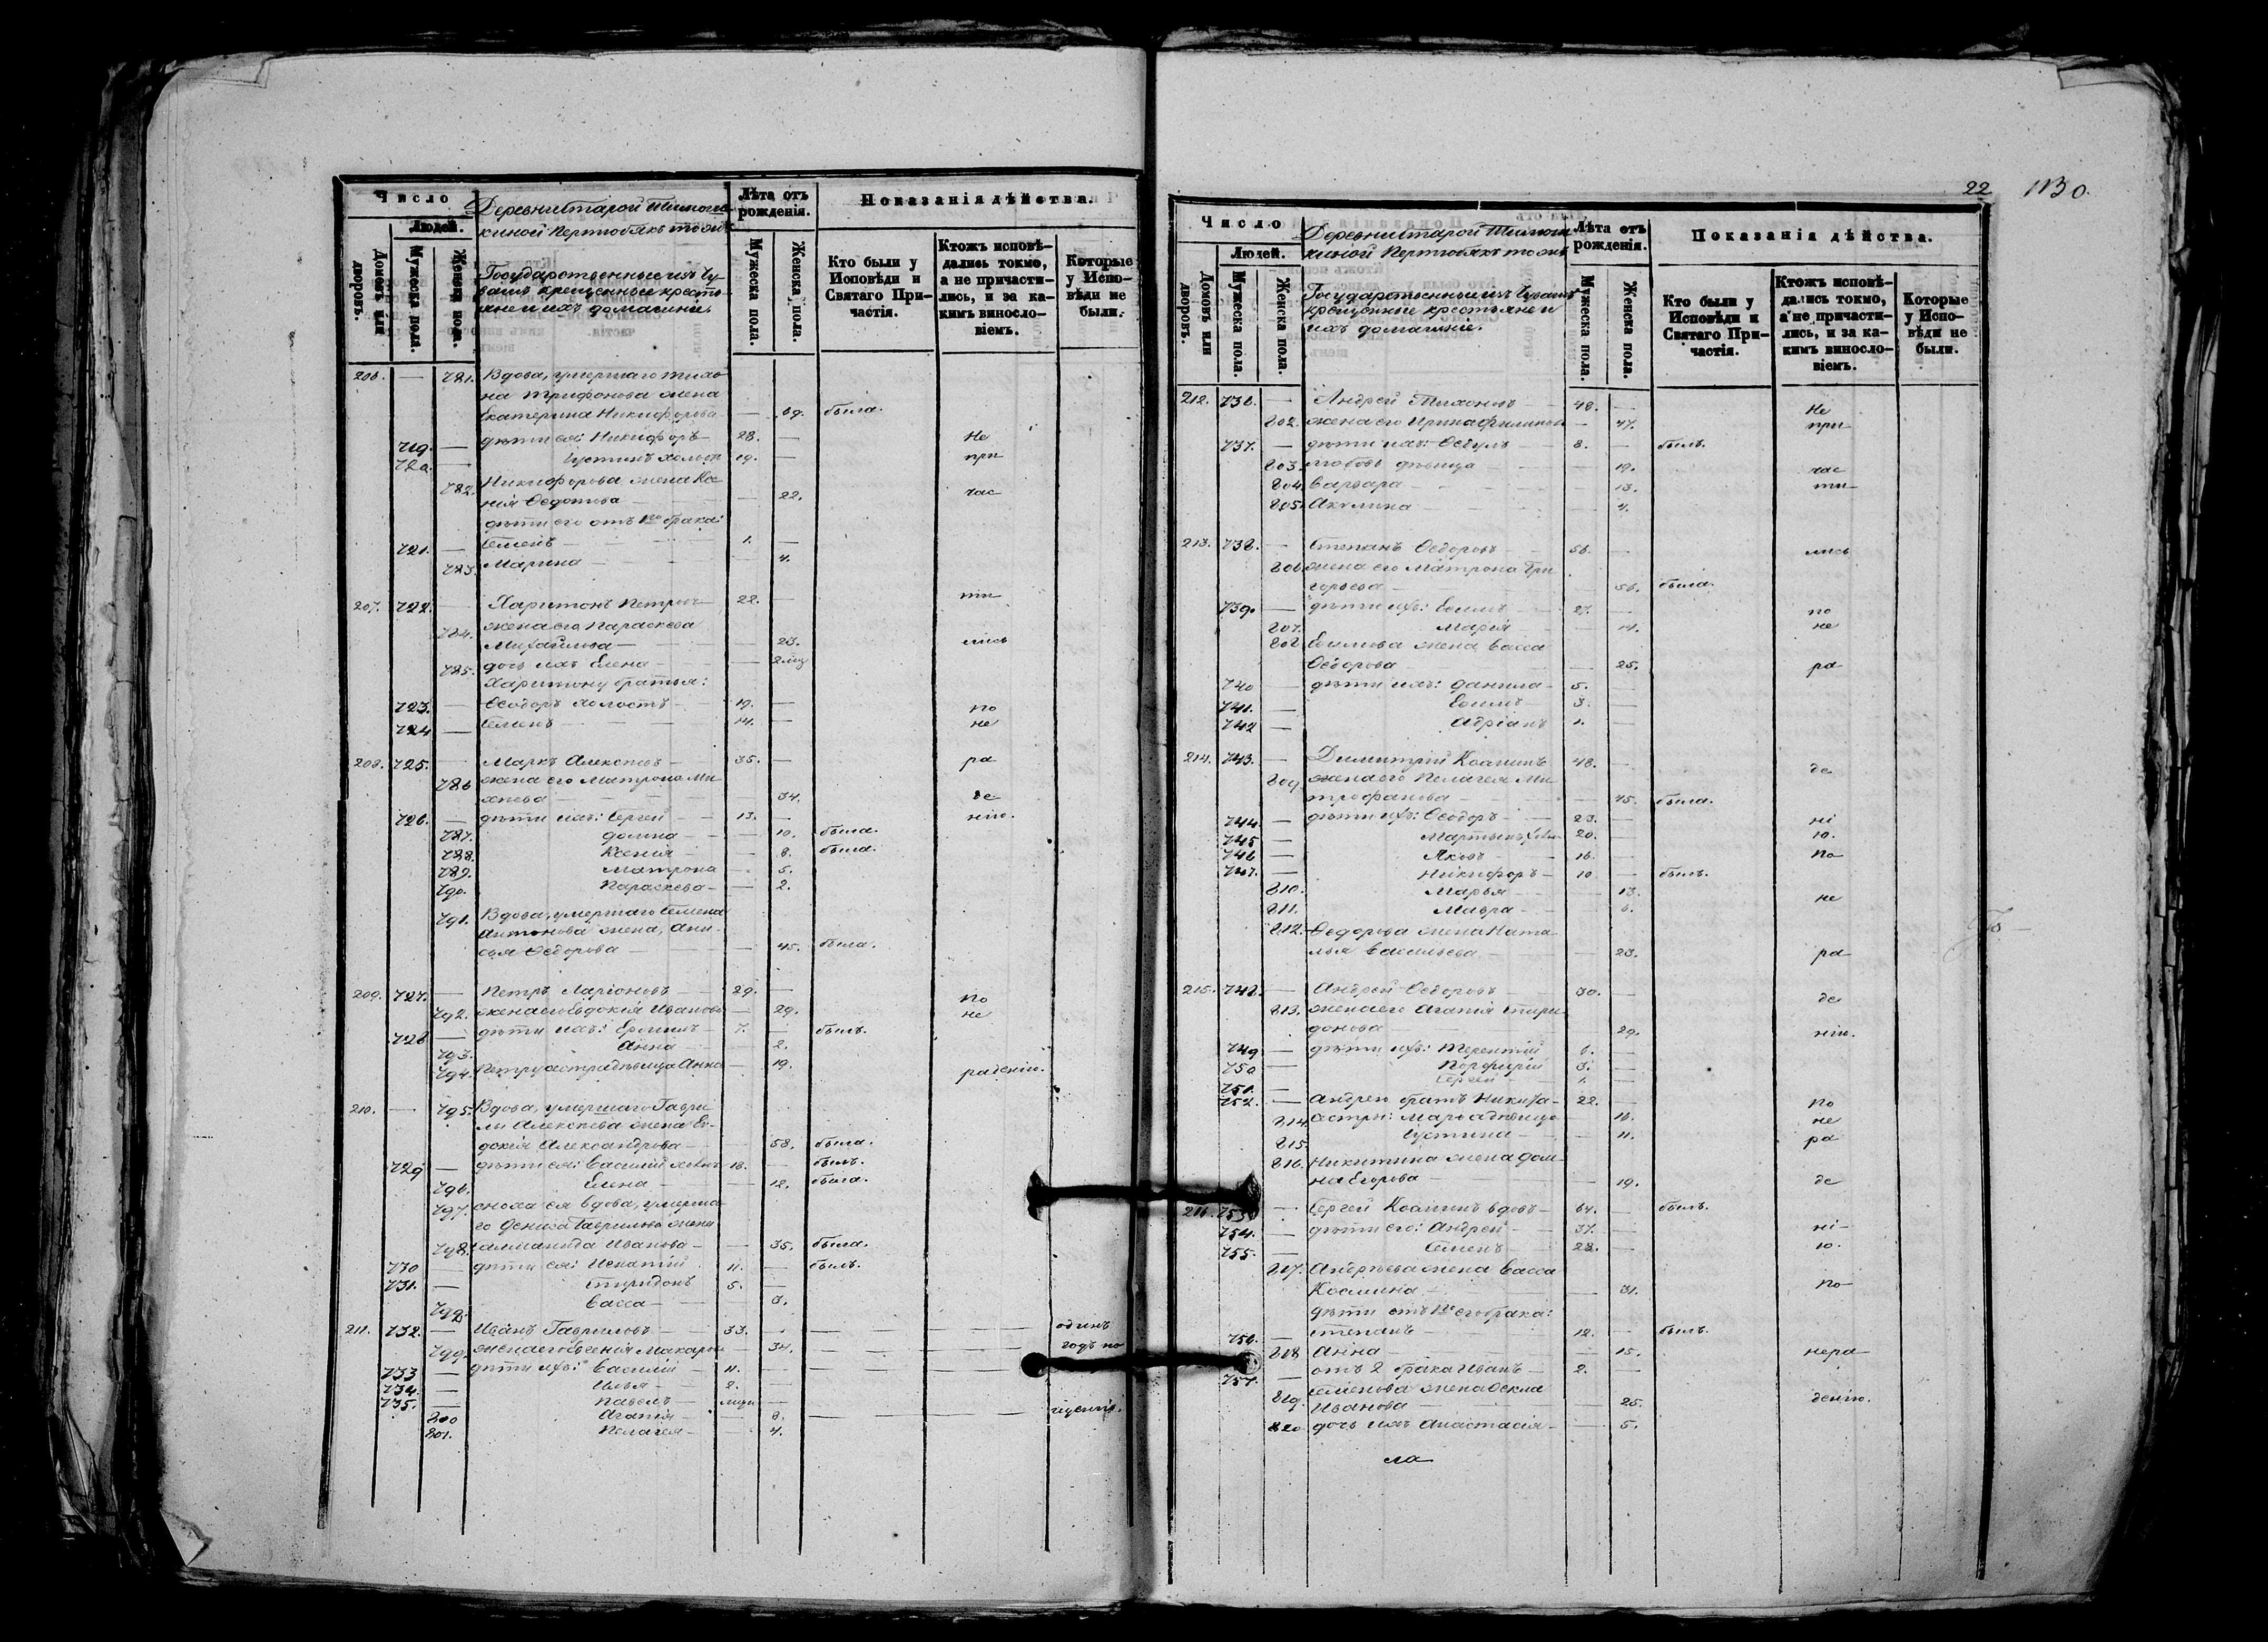 Число
Людей.
Домовъ или дворовъ.
Мужеска пола.
Женска пола.
Деревни Старой Шимот
киной Пертюбякъ тожъ
Государственные изъ Чу
вашъ крещенные кресть
яне и ихъ домашніе.
Лѣта отъ рожденія.
Мужеска пола.
Женска пола.
Показанія дѣйства.
Кто были у Исповѣди и Святаго При-частія.
Ктожъ исповѣ-дались токмо, а не причасти-лись, и за ка-кимъ виносло-віемъ.
Которые у Испо-вѣди не были.
206. — 781. Вдова, умершаго Тихо
на Трифонова жена
Екатерина Никифорова — 69. была.
719. — дѣти ея: Никифоръ — 28. — Не
720. — Іустинъ холост 19. — при
782. Никифорова жена Кс
нія Ѳедотова — 22. час
дѣти его отъ 1го брака:
721. — Семенъ — 1. —
783. Марина — 4.
207. 722. — Харитонъ Петровъ — 22. — ти
784. жена его Параскева
Михайлова — 23. лись
785. дочь ихъ Елена — 2 мѣ
Харитону братья:
723. — Ѳеодоръ холостъ — 19. — по
724 — Семенъ — 14. — не
208. 725. — Маркъ Алексѣевъ — 35. — ра
786 жена его Матрона Ми
хѣева — 34. де
726. — дѣти ихъ: Сергей — 13. — нію.
787. Домна — 10. была.
788. Ксенія — 8. была.
789. Матрона — 5.
790. Параскева — 2.
791. Вдова, умершаго Семена
Антонова жена, Ани
сья Ѳедорова — 45. была.
209. 727. — Петръ Ларіоновъ — 29. — по
792. жена его Евдокія Иванова — 29. не
728 — дѣти ихъ: Ефимъ — 7. — былъ.
793. Анна — 2.
794. Петру сестра дѣвица Анна — 19. радѣнію.
210. — 795. Вдова, умершаго Гаври
лы Алексѣева жена Ев-
докія Александрова — 58. была.
729 — дѣти ея: Василій холост 18. — былъ.
796. Елена — 12. была.
797. сноха ея вдова, умерша
го Дениса Гаврилова жена
798. Саломанида Иванова — 35. была.
730 — дѣти ея: Игнатій 11. — былъ.
731. — Спиридонъ 5. —
799. Васса — 3.
211. 732. — Иванъ Гавриловъ — 33. — одинъ
799. жена его Евгенія Макаров — 34. годъ по
733 — дѣти ихъ: Василій — 11. —
734. — Илья — 2. —
735. — Павелъ —
800 Агапія — 8. — щенію.
801. Пелагея — 4.
22 1130.
Число
Людей.
Домовъ или дворовъ.
Мужеска пола.
Женска пола.
Деревни Старой Шимот
киной Пертюбякъ тожъ
Государственные изъ Чувашъ
крещенные крестьяне и
ихъ домашніе.
Лѣта отъ рожденія.
Мужеска пола.
Женска пола.
Показанія дѣйства.
Кто были у Исповѣди и Святаго При-частія.
Ктожъ исповѣ-дались токмо, а не причасти-лись, и за ка-кимъ виносло-віемъ.
Которые у Испо-вѣди не были.
212. 736. — Андрей Тихоновъ — 48. — Не
802. жена его Ирина Филипов — 47. при
737. — дѣти ихъ: Ѳедулъ — 8. — былъ.
803. Любовь дѣвица — 19. час
804. Варвара — 13. ти
805. Акулина — 4.
213. 738. — Степанъ Ѳедоровъ — 56. — лись
806 жена его Матрона Гри
горьева — 56. была.
739. — дѣти ихъ: Евсимъ — 27. — по
807. Марія — 14. не
808 Евсимова жена Васса
Ѳедорова — 25. ра
740 — дѣти ихъ: Данила — 5. —
741. — Ефимъ — 3. —
742 — Адріанъ 1. —
214. 743. — Димитрій Козминъ 48. — де
809. жена его Пелагея Ми
трофанова — 45. была.
744. — дѣти ихъ: Ѳеодоръ — 23. — ні
745 — Мартынъ 20. — ю.
746 — Яковъ — 16. — По
747. — Никифоръ — 10 — былъ.
810. Марья — 13.
811. Мавра — 6. не
812. Ѳедорова жена Ната
лья Васильева — 23. ра
215. 748. — Андрей Ѳедоровъ — 30. — де
813. жена его Агапія Спири
донова — 29. нію.
749 — дѣти ихъ: Терентій 6. —
750 — Порфирій 3. —
751. — Сергей — 1. —
752. — Андрею братъ Никита — 22. — По
814. сестры: Марья дѣвица 16. не
815. Іустина — 11. ра
816. Никитина жена Дом-
на Егорова — 19. де
216. 753. — Сергей Козминъ вдовъ — 64. — былъ.
754. — дѣти его: Андрей — 37. — ні-
755. — Семенъ — 28. — ю.
817. Андреева жена Васса
Козмина — 31. По
дѣти отъ 1го его брака:
756. — Степанъ — 12. — былъ.
818 Анна — 15. нера
757. — отъ 2 брака Иванъ — 2. —
819. Семенова жена Ѳекла
Иванова — 25. дѣнію.
820 дочь ихъ Анастасія — 5.
ла